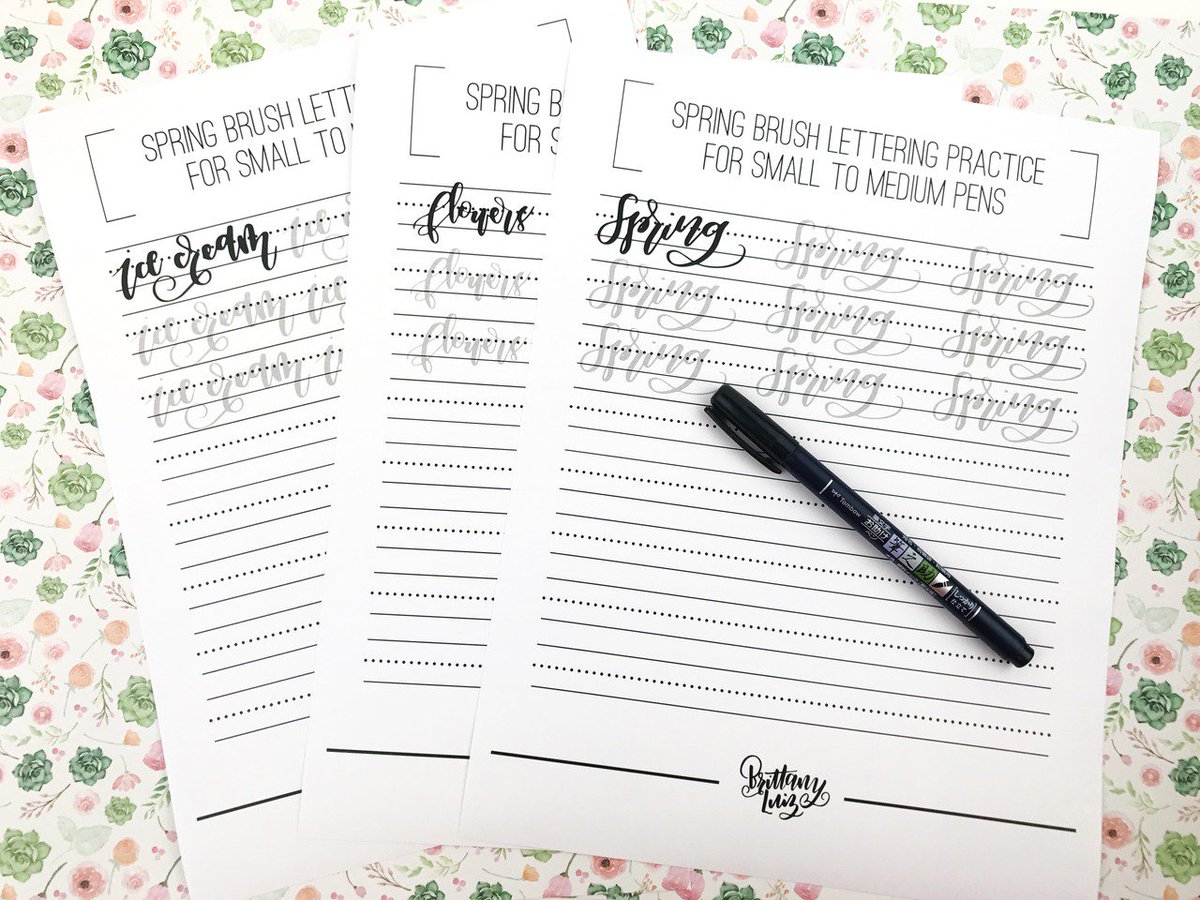 SPRING BRUSH LETT
FOR SMALL TO
ice cream ice
ice cream ice
ice cream
SPRING B
FOR S
flowers
flowers
flowers
SPRING BRUSH LETTERING PRACTICE
FOR SMALL TO MEDIUM PENS
Spring Spring Spring
Spring Spring Spring
Spring Spring Spring
Tombow
お助け
筆之助
しっかり
仕立て
Brittany
Luiz